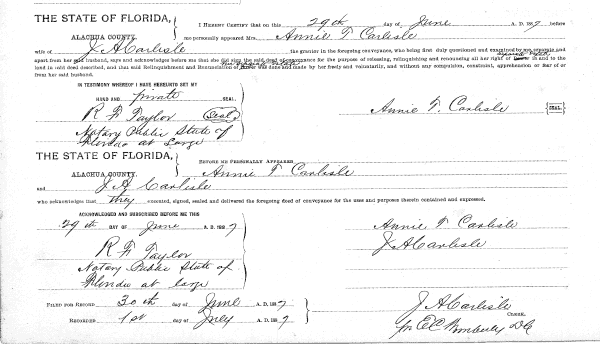 THE STATE OF FLORIDA,
ALACHUA COUNTY.
I HEREBY CERTIFY that on this 29th day of June A. D. 1887, before
me personally appeared Mrs. Annie T Carlisle
wife of J A Carlisle the grantor in the foregoing conveyance, who being first duly questioned and examined by me separate and
apart from her said husband, says and acknowledges before me that she did sign the said deed of conveyance for the purpose of releasing, relinquishing and renouncing all her right of in and to the
land in said deed described, and that said Relinquishment and Renunciation of was done and made by her freely and voluntarily, and without any compulsion, constraint, apprehension or fear of or
from her said husband.
IN TESTIMONY WHEREOF I HAVE HEREUNTO SET MY
HAND AND private SEAL.
R F Taylor (Seal)
Notary Public State of
Florida at Large
Annie T. Carlisle {SEAL}
THE STATE OF FLORIDA,
ALACHUA COUNTY.
BEFORE ME PERSONALLY APPEARED
Annie T Carlisle
and J A Carlisle
who acknowledge that they executed, signed, sealed and delivered the foregoing deed of conveyance for the uses and purposes therein contained and expressed.
ACKNOWLEDGED AND SUBSCRIBED BEFORE ME THIS
29th DAY OF June A. D. 1887
R F Taylor
Notary Public State of
Florida at large
Annie T Carlisle
J A Carlisle
FILED FOR RECORD 30th day of June A. D. 1887
RECORDED 1st day of July A. D. 1887
J A Carlisle
CLERK.
pr E C Wimberly D C